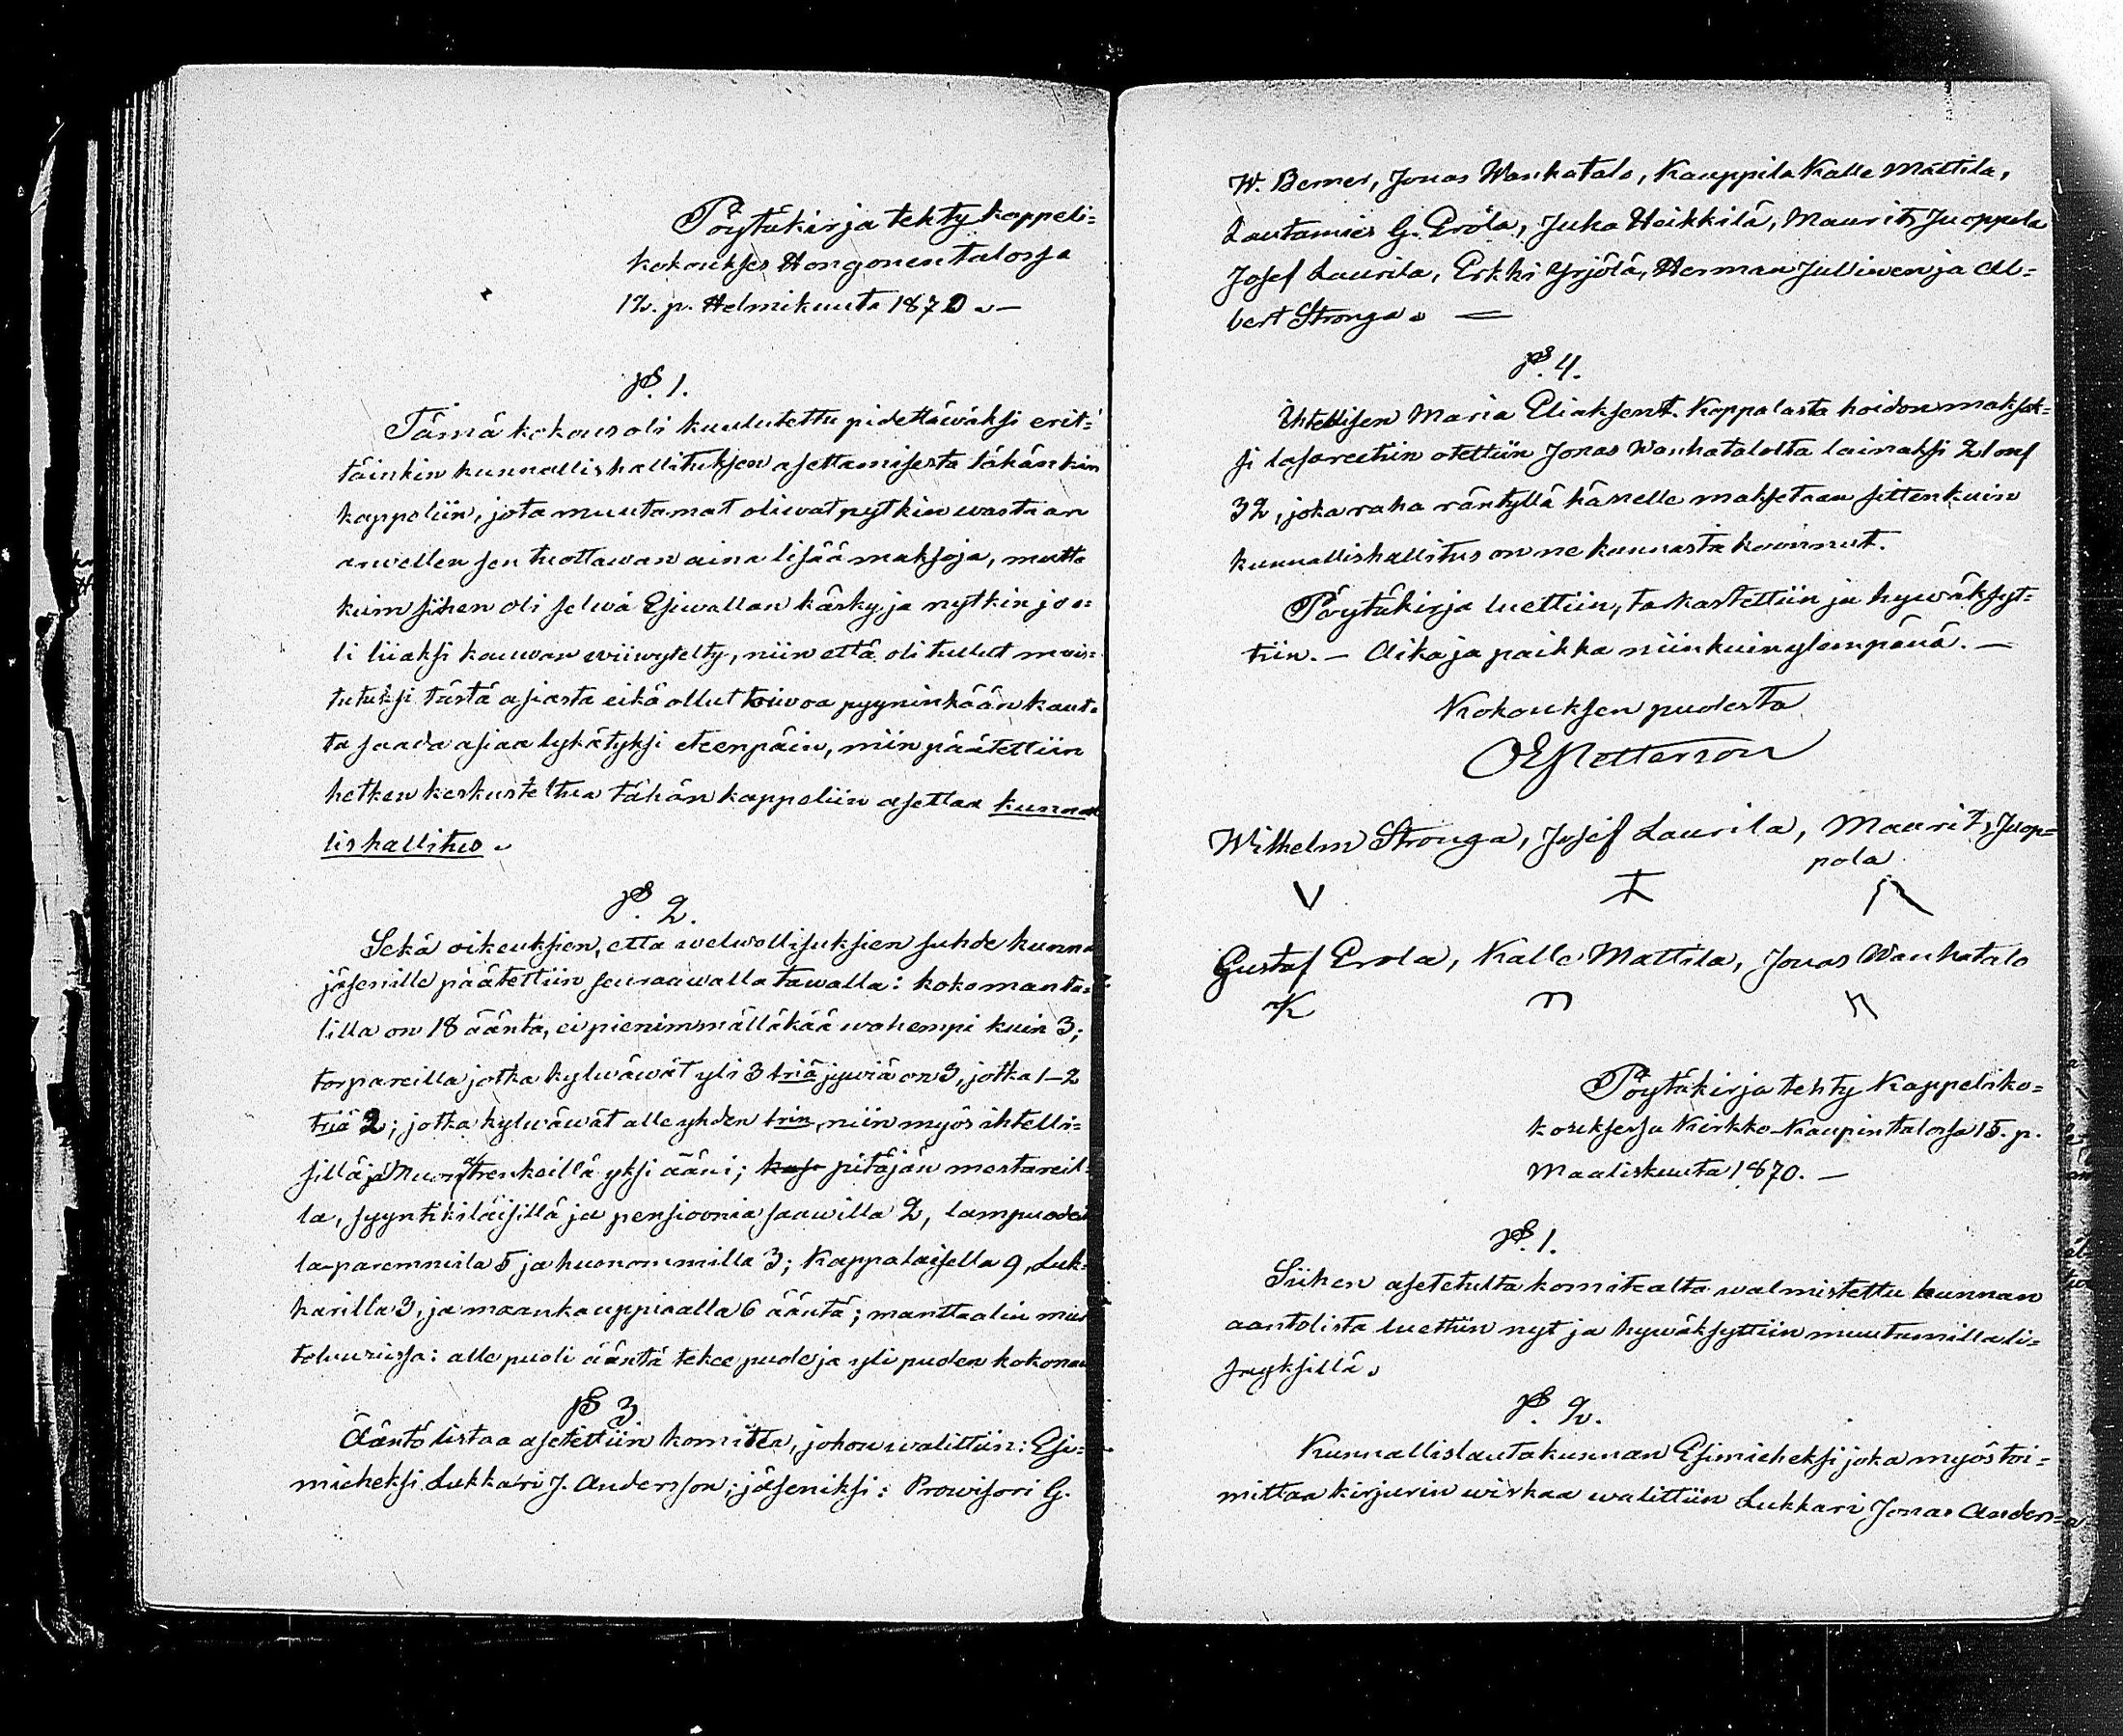 Pöytäkirja tehty kappeli=
kokoukses Hongonen talossa
12. p. Helmikuuta 1870. —
p§. 1.
Tämä kokous oli kuulutettu pidettäwäksi erit=
täinkin kunnallishallituksen asettamisesta tähänkin
kappeliin, jota muutamat oliwat nytkin wastaan
arwellen sen tuottawan aina lisää maksoja, mutta
kuin siihen oli selwä Esiwallan käsky ja nytkin jo o=
li liiaksi kauwan wiiwytelty, niin että oli tullut muis=
tutuksi tästä asiasta eikä ollut toiwoa pyyninkään kaut=
ta saada asiaa lykätyksi eteenpäin, niin päätettiin
hetken keskusteltua tähän kappeliin asettaa kunnal
lishallitus.
p§. 2.
Sekä oikeuksien, että welwollisuksien suhde kunna
jäsenille päätettiin seuraawalla tawalla: koko manta=
lilla on 18 ääntä, ei pienimmälläkää wähempi kuin 3;
torpareilla jotka kylwäwät yli 3 triä jywiä on 3, jotka 1–2
triä 2; jotka kylwäwät alle yhden trin, niin myös ihtelli=
sillä ja Nuon trenkeillä yksi ääni; pitäjän mestareil=
la, syyntikiläisillä ja pensioonia saawilla 2, lampuodeil
la paremmilla 5 ja huonommilla 3; Kappalaisella 9, Luk=
karilla 3, ja maankauppiaalla 6 ääntä; manttaalin mur
toluwuissa: alle puoli ääntä tekee puole ja yli puolen kokonai
p§ 3
Ääntölistaa asetettiin komitea, johon walittiin: Esi=
mieheksi Lukkari J. Andersson; jäseniksi: Prowisori G.
W. Berner, Jonas Wanhatalo, Kauppila Kalle Mattila,
Lautamies G. Erola, Juha Heikkilä, Maurits Juoppola
Josef Laurila, Erkki Yrjölä, Herman Jullinen ja Al=
bert Stronga. =
p§. 4.
Ihtellisen Maria Eliaksent. Koppalasta hoidon maksok=
si lasareetiin otettiin Jonas Wanhatalolta lainaksi
32, joka raha räntyllä hänelle maksetaan sittenkuin
kunnallishallitus on ne kunnasta koonnut.
Pöytäkirja luettiin, tarkastettiin ja hywäksyt=
tiin. — Aika ja paikka niinkuin ylempänä. —
Kokouksen puolesta
OE Petterson
Wilhelm Stronga, Josef Laurila, Maurits Juop=
pola
Gustaf Erola, Kalle Mattila, Jonas Wanhatalo
Pöytäkirja tehty Kappeliko=
kouksessa Kirkko-Kaupin talossa 15. p.
Maaliskuuta 1870. —
p§. 1.
Siihen asetetulta komitealta walmistettu kunnan
aantolista luettiin nyt ja hywäksyttiin muutamilla li=
säyksillä.
p§. 2.
Kunnallislautakunnan Esimieheksi joka myös toi=
mittaa kirjurin wirkaa walittiin Lukkari Jonas Anders=